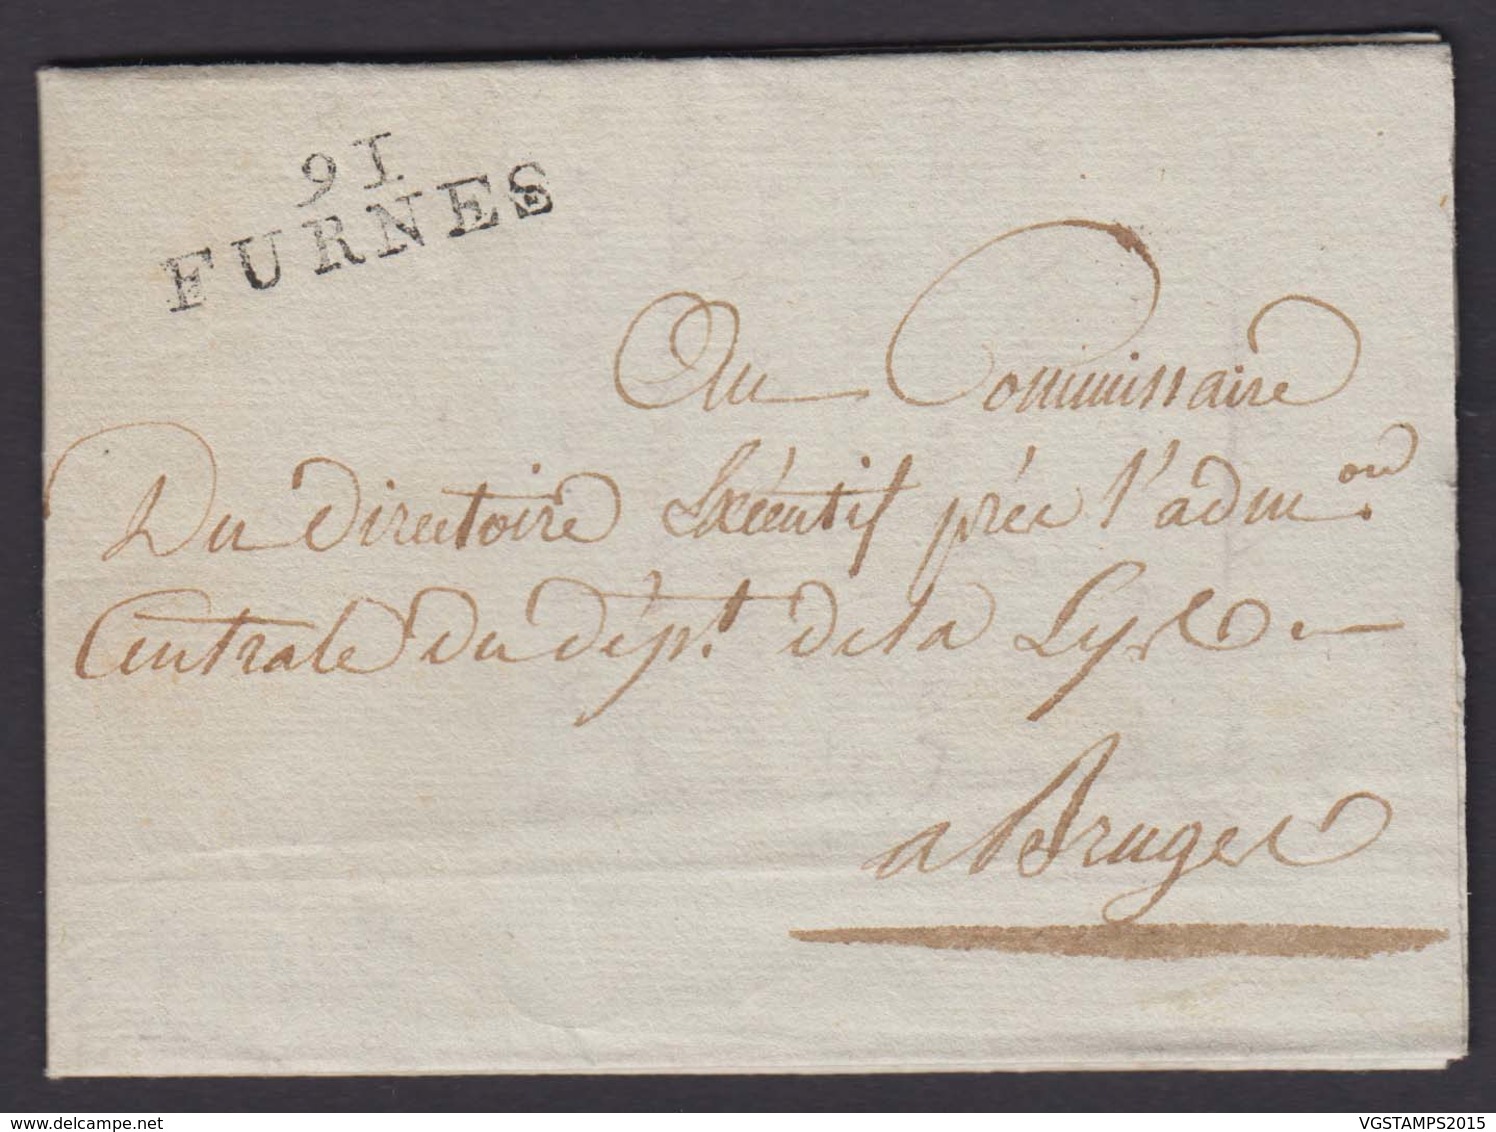 91
FURNES
Au Commissaire
Du directoire Exécutif près l'adm.on
Centrale du dép.t de la Lys
a Bruges
delcampe.net
VGSTAMPS2015